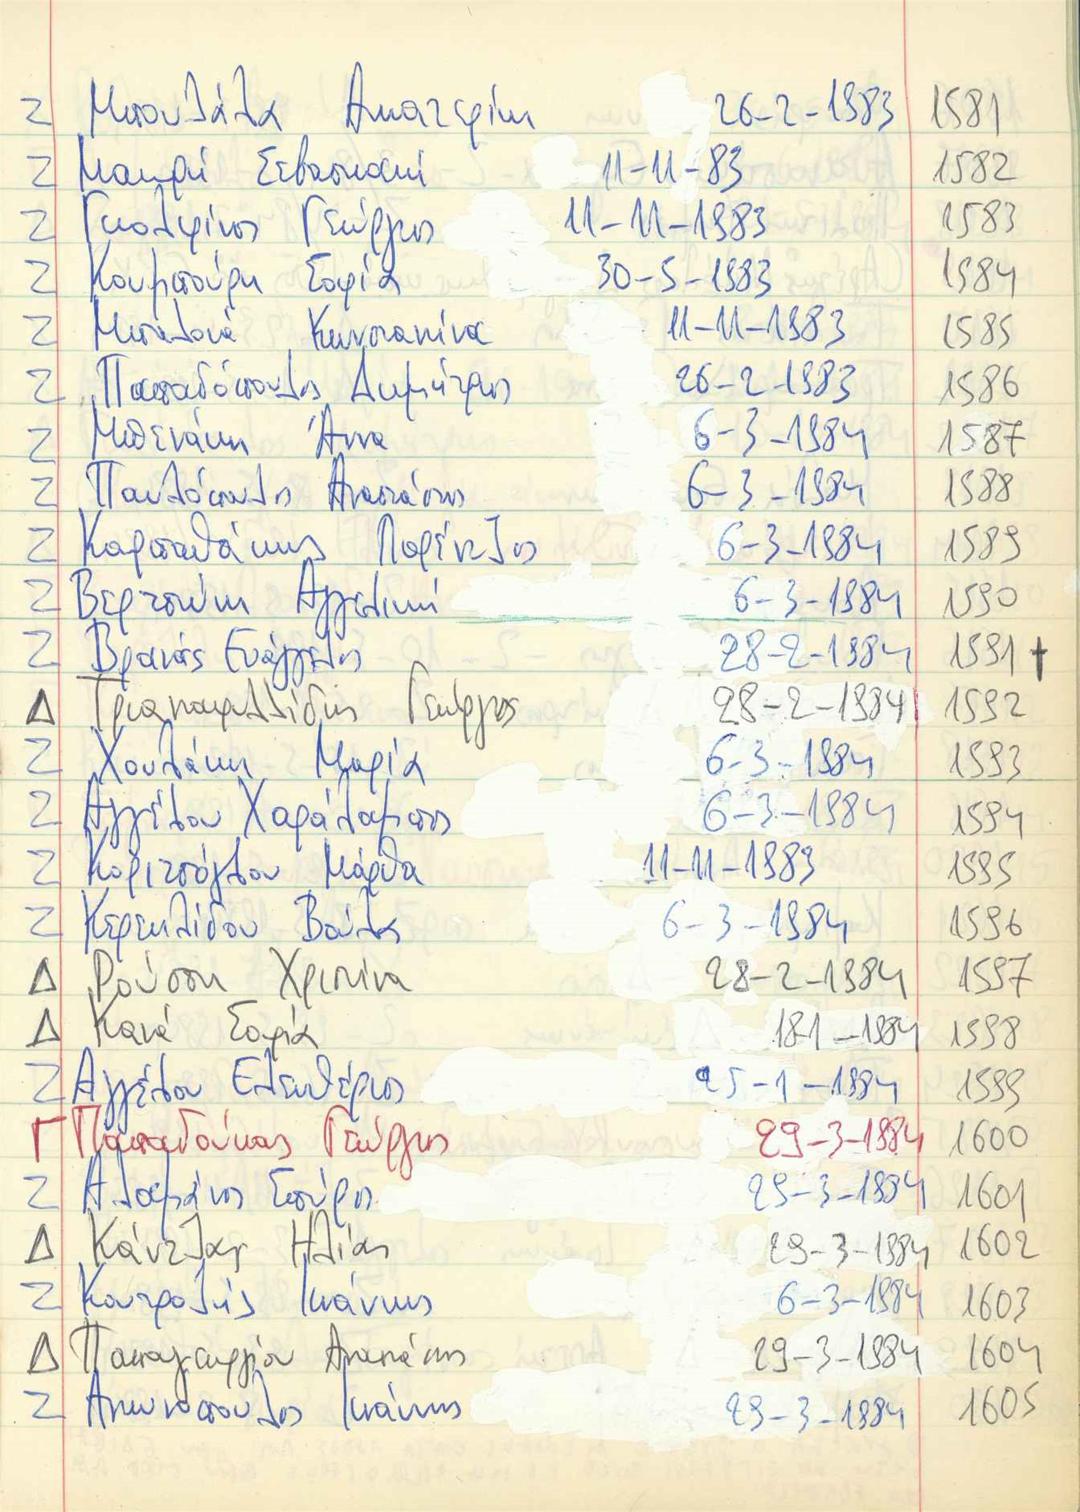 Ζ Μπουλάλα Αικατερίνη 26-2-1983 1581
Ζ Μακρή Σεβαστιανή 11-11-83 1582
Ζ Γκολφίνος Γεώργιος 11-11-1983 1583
Ζ Κουμπούρη Σοφία 30-5-1983 1584
Ζ Κωνσταντίνα 11-11-1983 1585
Ζ Παπαδόπουλος Δημήτριος 26-2-1983 1586
Ζ Μπενάκη Άννα 6-3-1984 1587
Ζ Παυλόπουλος Αναστάσιος 6-3-1984 1588
Ζ Καρπαθάκης 6-3-1984 1589
Ζ Βερτσώνη Αγγελική 6-3-1984 1590
Ζ Βρανάς Ευάγγελος 28-2-1984 1591 †
Δ Τριανταφυλλίδης Γεώργιος 28-2-1984 1592
Ζ Χουλάκη Μαρία 6-3-1984 1593
Ζ Αγγέλου Χαράλαμπος 6-3-1984 1594
Ζ Κοριτσόγλου Μάρθα 11-11-1983 1595
Ζ Κερεκλίδου Βούλα 6-3-1984 1596
Δ Ρούσση Χριστίνα 28-2-1984 1597
Δ Κανά Σοφία 18-1-1984 1598
Ζ Αγγέλου Ελευθέριος 25-1-1984 1599
Γ Παπαδούκας Γεώργιος 29-3-1984 1600
Ζ Αλαμάνος Σπύρος 29-3-1984 1601
Δ Κάντζας Ηλίας 29-3-1984 1602
Ζ Κουτρολής Ιωάννης 6-3-1984 1603
Δ Παπαγεωργίου Αναστάσιος 29-3-1984 1604
Ζ Αντωνόπουλος Ιωάννης 29-3-1984 1605